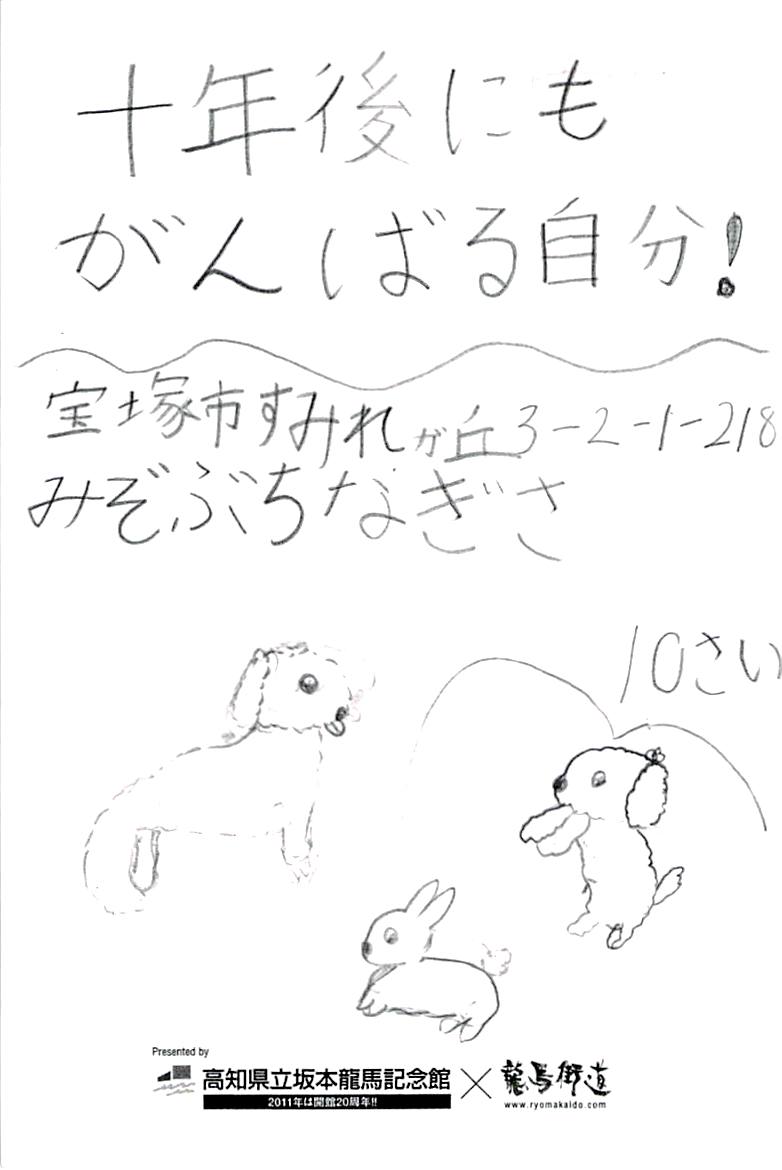 十年後にも
がんばる自分!
宝塚市すみれが丘3-2-1-218
みぞぶちなぎさ
10さい
Presented by
高知県立坂本龍馬記念館×龍馬街道
2011年は開館20周年!!
www.ryomakaido.com